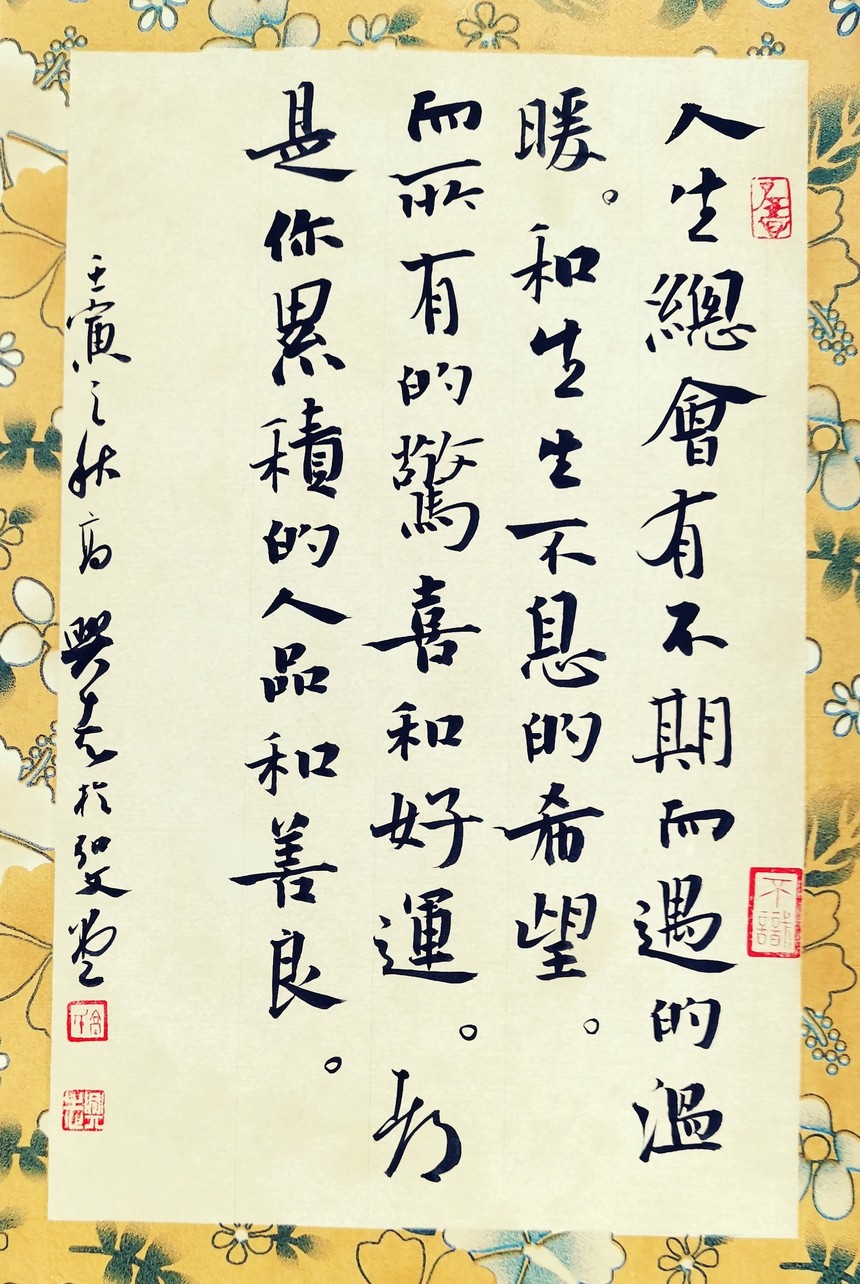 人生總會有不期而遇的溫
暖。和生生不息的希望。
而所有的驚喜和好運。都
是你累積的人品和善良。
壬寅之秋高興志於